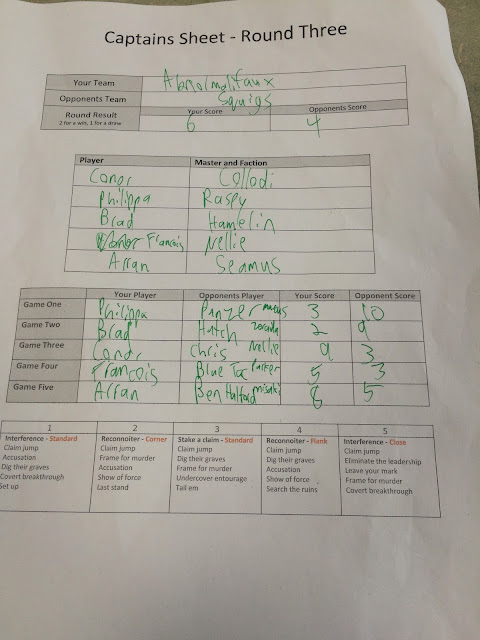 Captains Sheet - Round Three
Your Team Abnormalifaux
Opponents Team Squigs
Round Result Your Score Opponents Score
2 for a win, 1 for a draw 6 4
Player Master and Faction
Conor Collodi
Philippa Raspy
Brad Hamelin
Francois Nellie
Arran Seamus
Your Player Opponents Player Your Score Opponent Score
Game One Philippa Panzer marcus 3 10
Game Two Brad Hatch zoraida 2 9
Game Three Conor Chris Nellie 9 3
Game Four Francois Blue Toc Parker 5 3
Game Five Arran Ben Halford misaki 8 5
1 2 3 4 5
Interference - Standard Reconnoiter - Corner Stake a claim - Standard Reconnoiter - Flank Interference - Close
Claim jump Claim jump Claim jump Claim jump Claim jump
Accusation Frame for murder Dig their graves Dig their graves Eliminate the leadership
Dig their graves Accusation Frame for murder Accusation Leave your mark
Covert breakthrough Show of force Undercover entourage Show of force Frame for murder
Set up Last stand Tail em Search the ruins Covert breakthrough